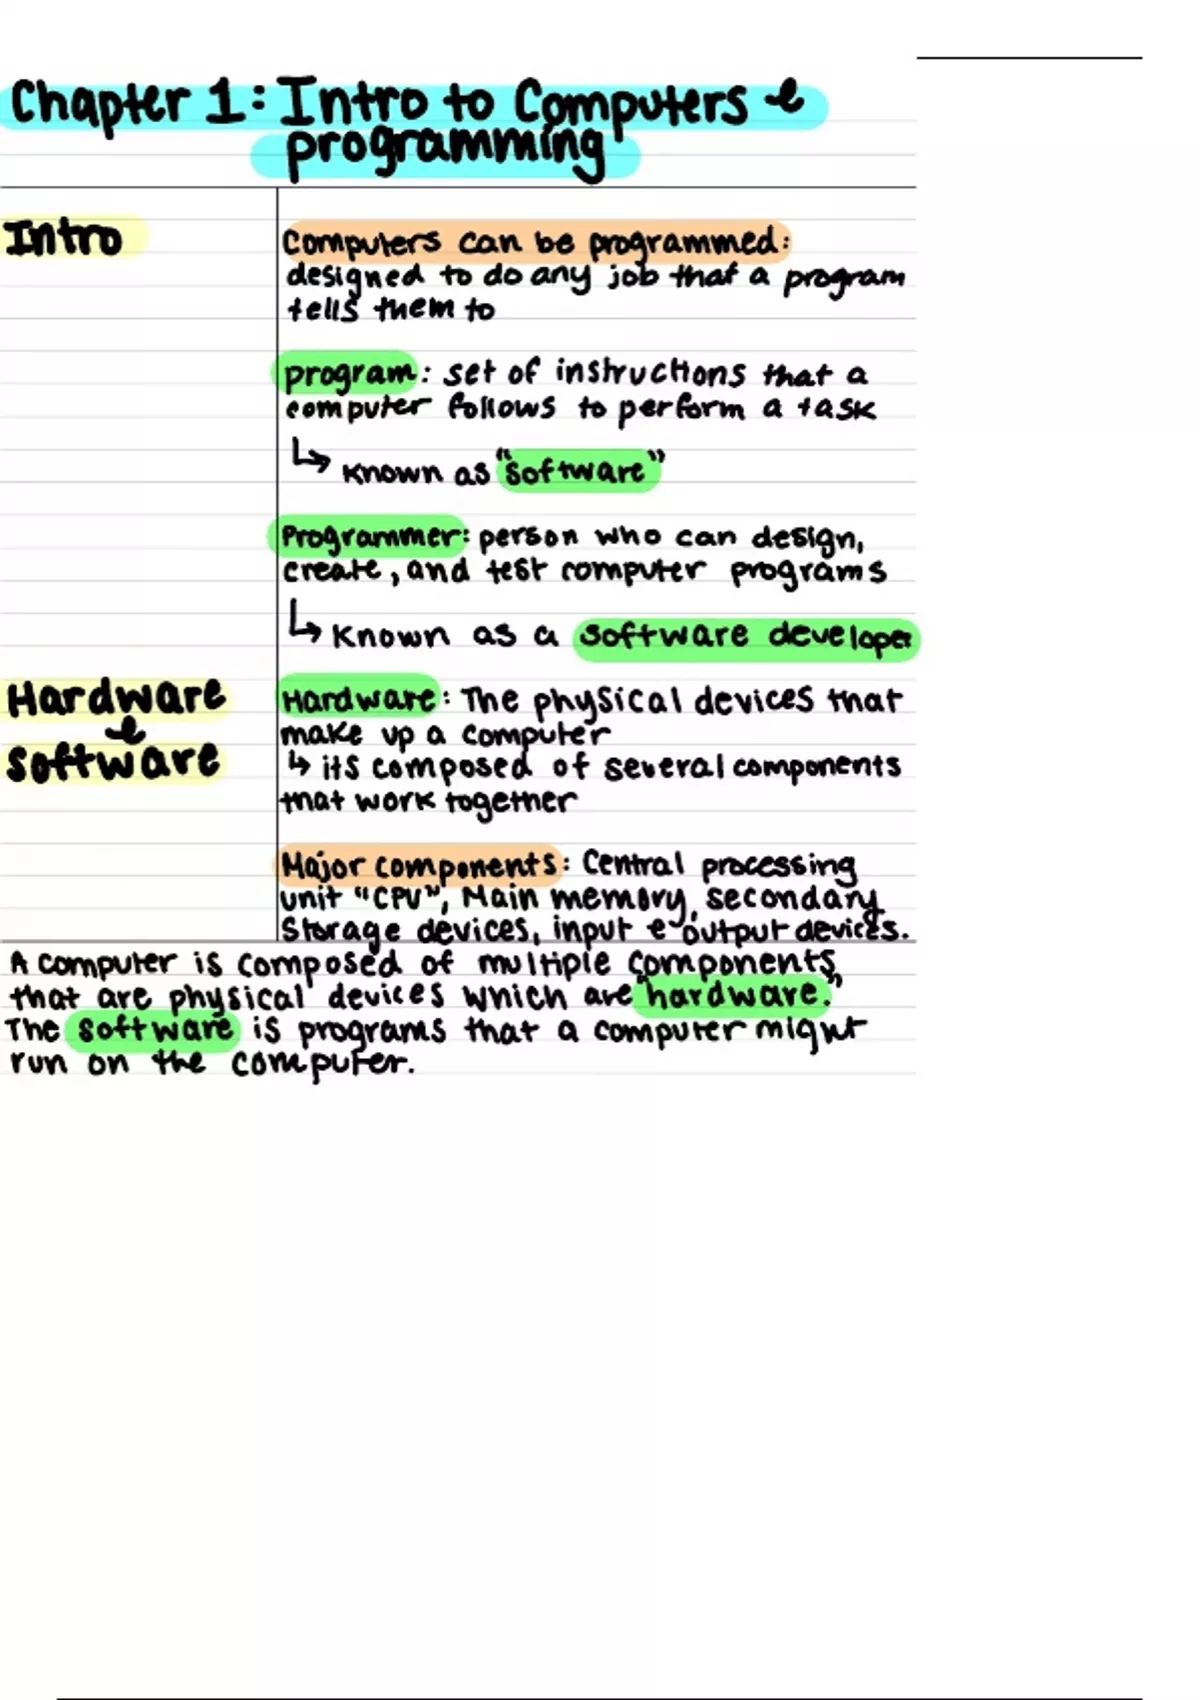 Chapter 1: Intro to Computers &
programming
Intro
Computers can be programmed:
designed to do any job that a program
tells them to
program: set of instructions that a
computer follows to perform a task
↳ known as "software"
Programmer: person who can design,
create, and test computer programs
↳ known as a software developer
Hardware
&
software
Hardware: The physical devices that
make up a computer
↳ its composed of several components
that work together
Major components: Central processing
unit "CPU", Main memory, secondary
storage devices, input & output devices.
A computer is composed of multiple components,
that are physical devices which are "hardware."
The software is programs that a computer might
run on the computer.